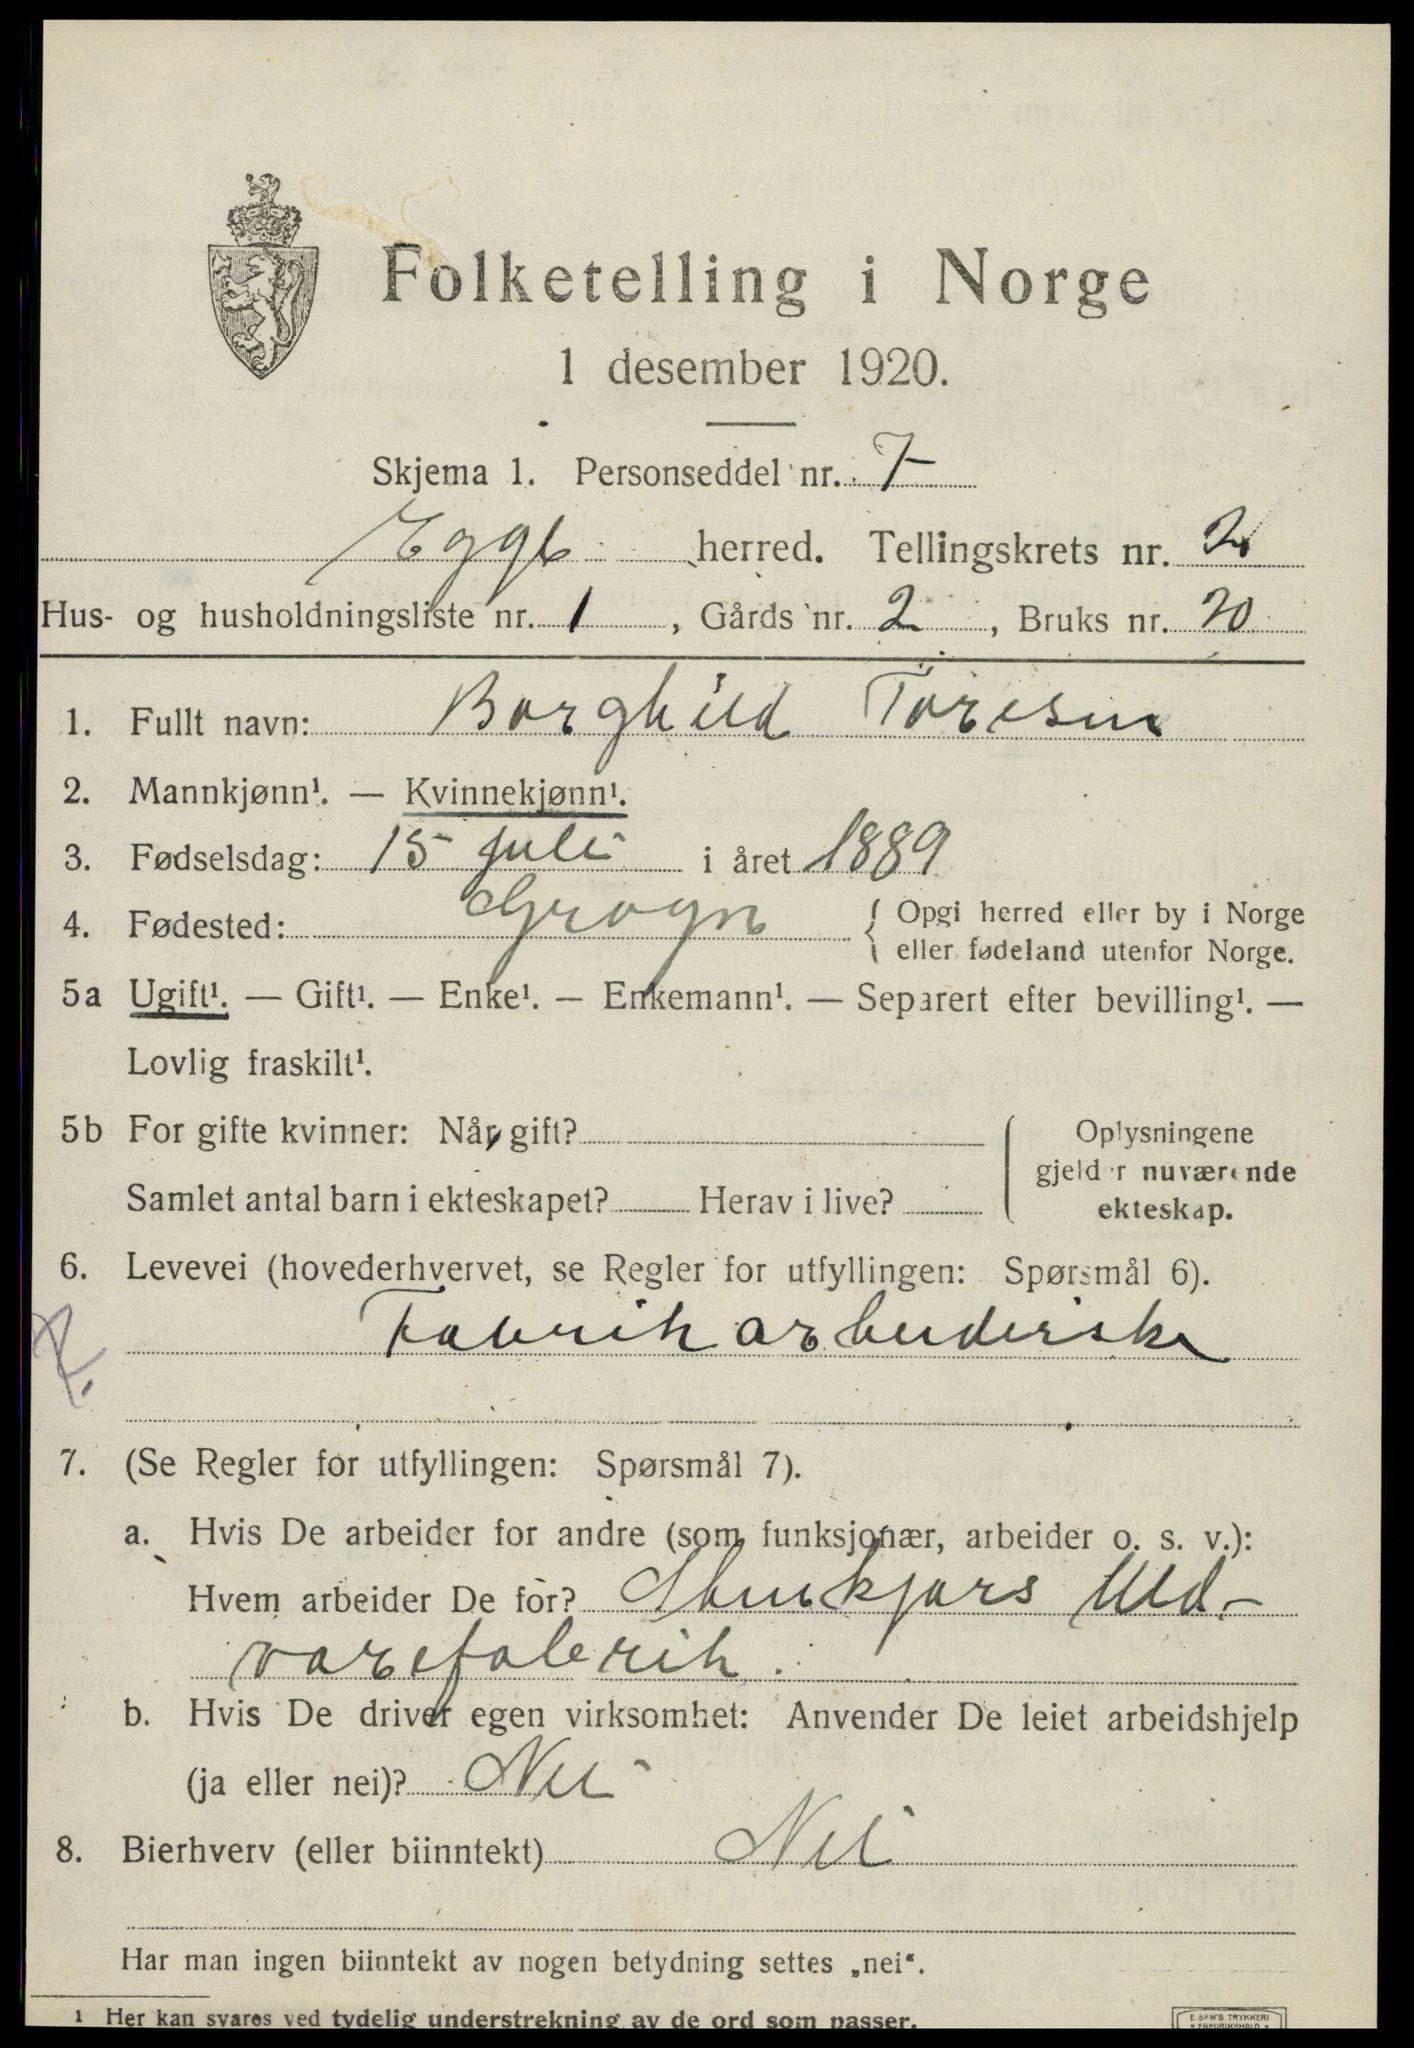 Folketelling i Norge
1 desember 1920.
Skjema 1. Personseddel nr. 7
Egge herred. Tellingskrets nr. 2
Hus- og husholdningsliste nr. 1, Gårds nr. 2, Bruks nr. 20
1. Fullt navn: Borghild Toresen
2. Mannkjønn¹. — Kvinnekjønn¹.
3. Fødselsdag: 15 juli i året 1889
4. Fødested: { Opgi herred eller by i Norge
eller fødeland utenfor Norge.
5a Ugift¹. — Gift¹. — Enke¹. — Enkemann¹. — Separert efter bevilling¹. —
Lovlig fraskilt¹.
5b For gifte kvinner: Når gift?
Samlet antal barn i ekteskapet? Herav i live?
Oplysningene
gjelder nuværende
ekteskap.
6. Levevei (hovederhvervet, se Regler for utfyllingen: Spørsmål 6).
Fabrikarbeiderske
7. (Se Regler for utfyllingen: Spørsmål 7).
a. Hvis De arbeider for andre (som funksjonær, arbeider o. s. v.):
Hvem arbeider De for? Stenkjærs Uld-
varefabrik.
b. Hvis De driver egen virksomhet: Anvender De leiet arbeidshjelp
(ja eller nei)? Nei
8. Bierhverv (eller biinntekt) Nei
Har man ingen biinntekt av nogen betydning settes „nei“.
1 Her kan svares ved tydelig understrekning av de ord som passer.
E. SEM'S TRYKKERI
FREDRIKSHALD